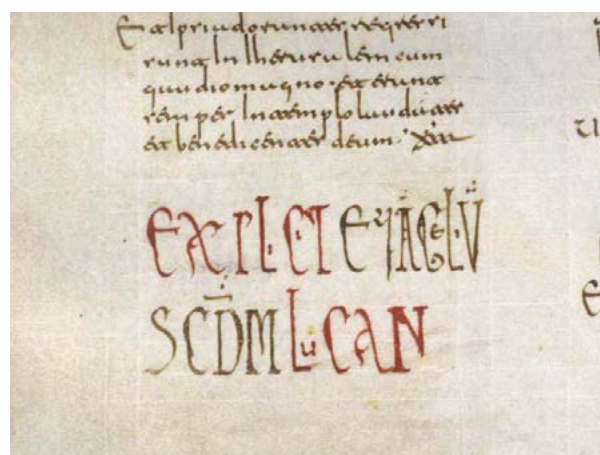 Et Ipsi adorantes regressi
sunt In Iherusalem cum
gaudio magno · et erant
semper In templo laudantes
et benedicentes deum ·
EXPLICIT
SCDM LUCAN